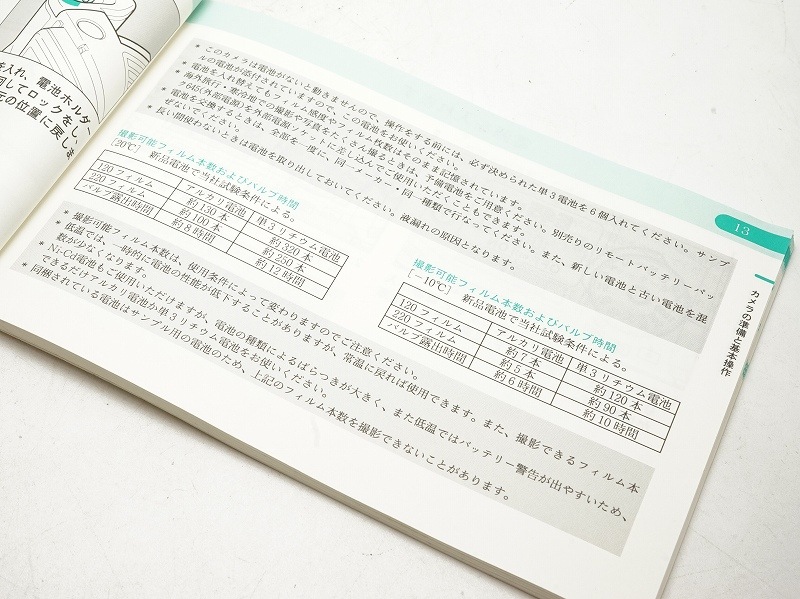 を入れ、電池ホルダー
回してロックをし、
元の位置に戻しま
* このカメラは電池がないと動きませんので、操作をする前には、必ず決められた単3電池を6個入れてください。サンプ
ルの電池が添付されていますので、この電池をお使いください。
* 電池を入れ替えてもフィルム感度やフィルム枚数はそのまま記憶されています。
* 海外旅行・寒冷地での撮影や写真をたくさん撮るときは、予備電池をご用意ください。別売りのリモートバッテリーパッ
ク645(外部電源)を外部電源ソケットに差し込んでご使用いただくこともできます。
* 電池を交換するときは、全部を一度に、同一メーカー・同一種類で行なってください。また、新しい電池と古い電池を混
ぜないでください。
* 長い間使わないときは電池を取り出しておいてください。液漏れの原因となります。
撮影可能フィルム本数およびバルブ時間
[20℃] 新品電池で当社試験条件による。
アルカリ電池 単3リチウム電池
120フィルム 約130本 約320本
220フィルム 約100本 約250本
バルブ露出時間 約8時間 約12時間
撮影可能フィルム本数およびバルブ時間
[−10℃] 新品電池で当社試験条件による。
アルカリ電池 単3リチウム電池
120フィルム 約7本 約120本
220フィルム 約5本 約90本
バルブ露出時間 約6時間 約10時間
* 撮影可能フィルム本数は、使用条件によって変わりますのでご注意ください。
* 低温では、一時的に電池の性能が低下することがありますが、常温に戻れば使用できます。また、撮影できるフィルム本
数が少なくなります。
* Ni-Cd電池もご使用いただけますが、電池の種類によるばらつきが大きく、また低温ではバッテリー警告が出やすいため、
できるだけアルカリ電池か単3リチウム電池をお使いください。
* 同梱されている電池はサンプル用の電池のため、上記のフィルム本数を撮影できないことがあります。
13
カメラの準備と基本操作